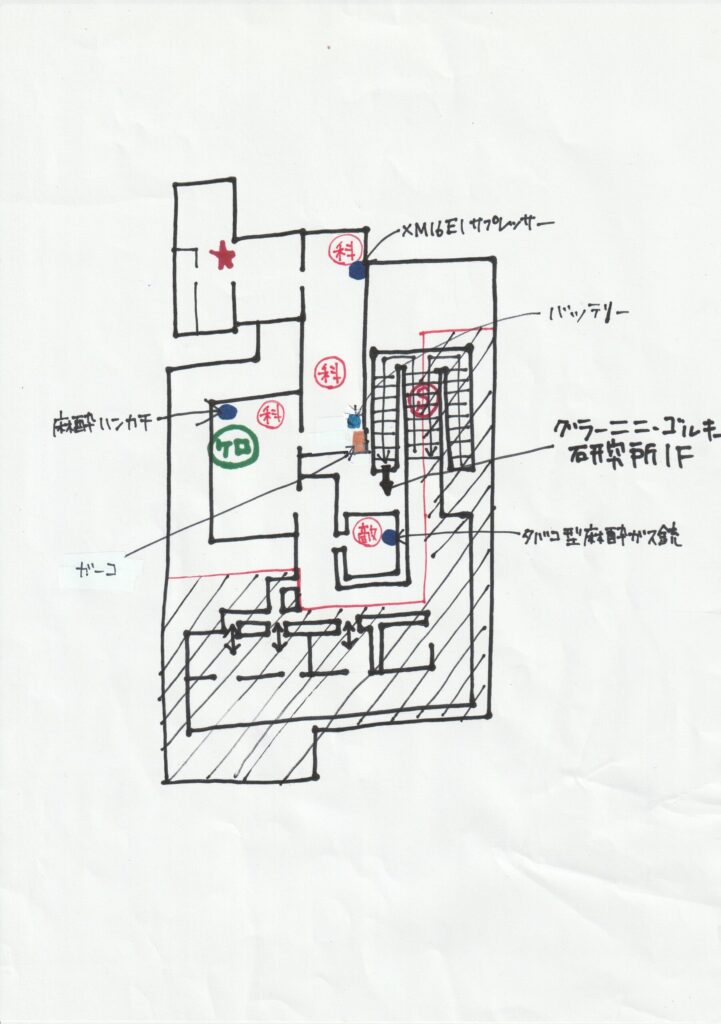 XM16E1サプレッサー
科
バッテリー
科
麻酔ハンカチ
科
S
ケロ
グラーニニ・ゴルキー
研究所1F
敵
タバコ型麻酔ガス銃
ガーコ